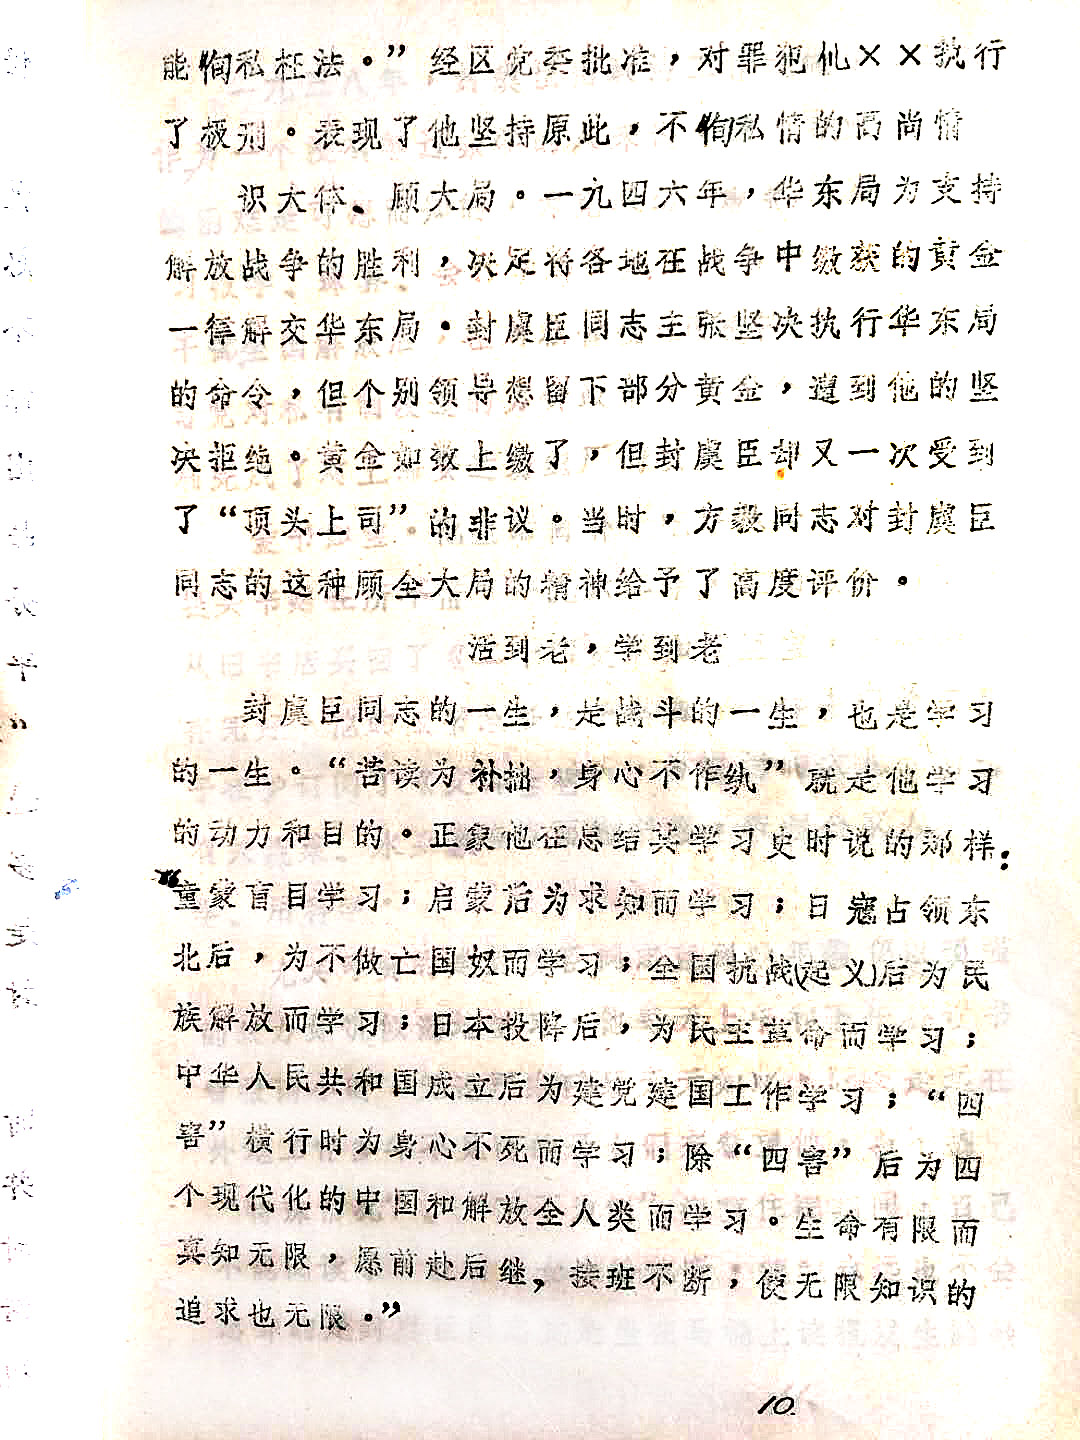 能徇私枉法。”经区党委批准，对罪犯仉××执行
了极刑。表现了他坚持原此，不徇私情的高尚情
识大体、顾大局。一九四六年，华东局为支持
解放战争的胜利，决定将各地在战争中缴获的黄金
一律解交华东局。封虞臣同志主张坚决执行华东局
的命令，但个别领导想留下部分黄金，遭到他的坚
决拒绝。黄金如数上缴了，但封虞臣却又一次受到
了“顶头上司”的非议。当时，方毅同志对封虞臣
同志的这种顾全大局的精神给予了高度评价。
活到老，学到老
封虞臣同志的一生，是战斗的一生，也是学习
的一生。“苦读为补拙，身心不作纨”就是他学习
的动力和目的。正象他在总结其学习史时说的那样：
童蒙盲目学习；启蒙后为求知而学习；日寇占领东
北后，为不做亡国奴而学习；全国抗战(起义)后为民
族解放而学习；日本投降后，为民主革命而学习；
中华人民共和国成立后为建党建国工作学习；“四
害”横行时为身心不死而学习；除“四害”后为四
个现代化的中国和解放全人类而学习。生命有限而
真知无限，愿前赴后继，接班不断，使无限知识的
追求也无限。”
10.